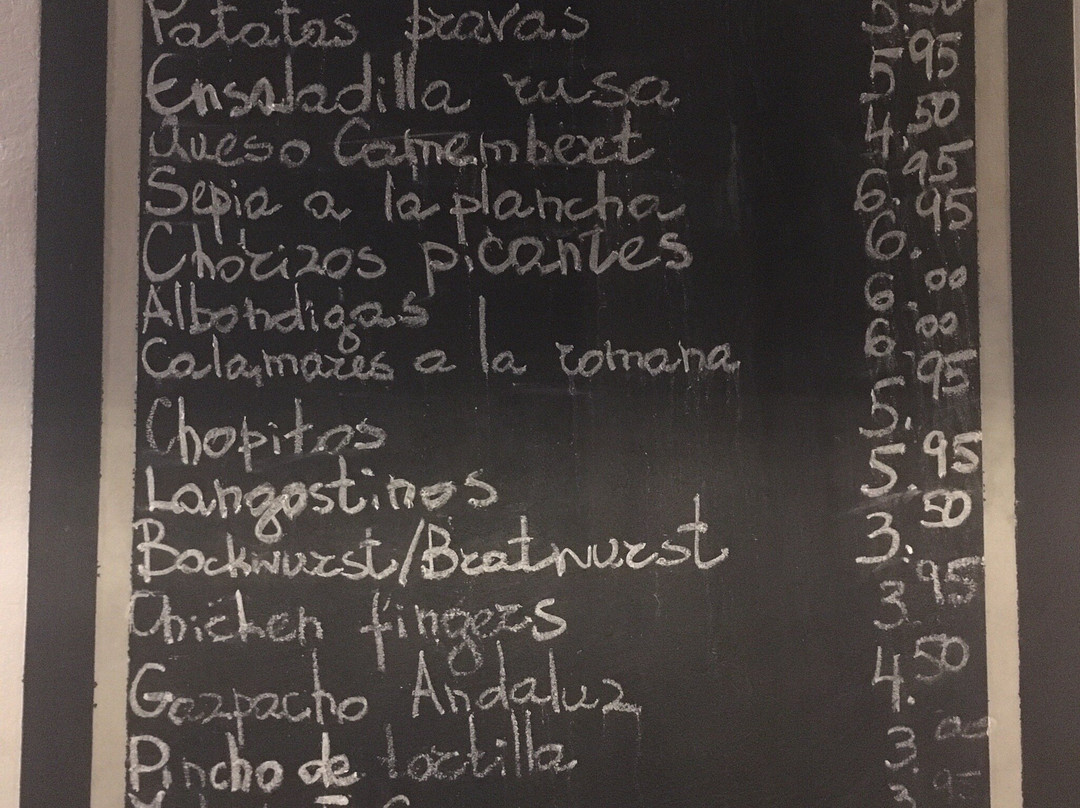 Patatas pravas 3.50
Ensaladilla rusa 5.95
Queso Camembert 4.50
Sepia a la plancha 6.95
Chorizos picantes 6.95
Albondigas 6.00
Calamares a la romana 6.00
Chopitos 5.95
Langostinos 5.95
Bockwurst/Bratwurst 3.50
Chicken fingers 3.95
Gazpacho Andaluz 4.50
Pincho de tortilla 3.00